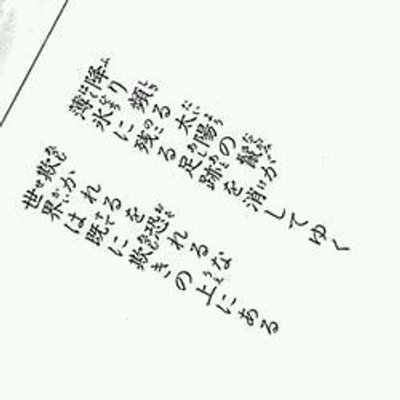 降り頻る太陽の鬣が
薄氷に残る足跡を消してゆく
欺かれるを恐れるな
世界は既に欺きの上にある